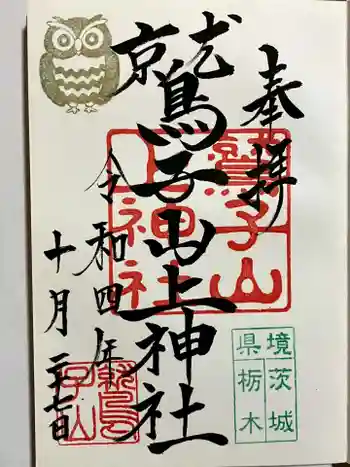 奉拝
鷲子山上神社
令和四年
十月二十七日
鷲子山上神社
境茨城
県栃木